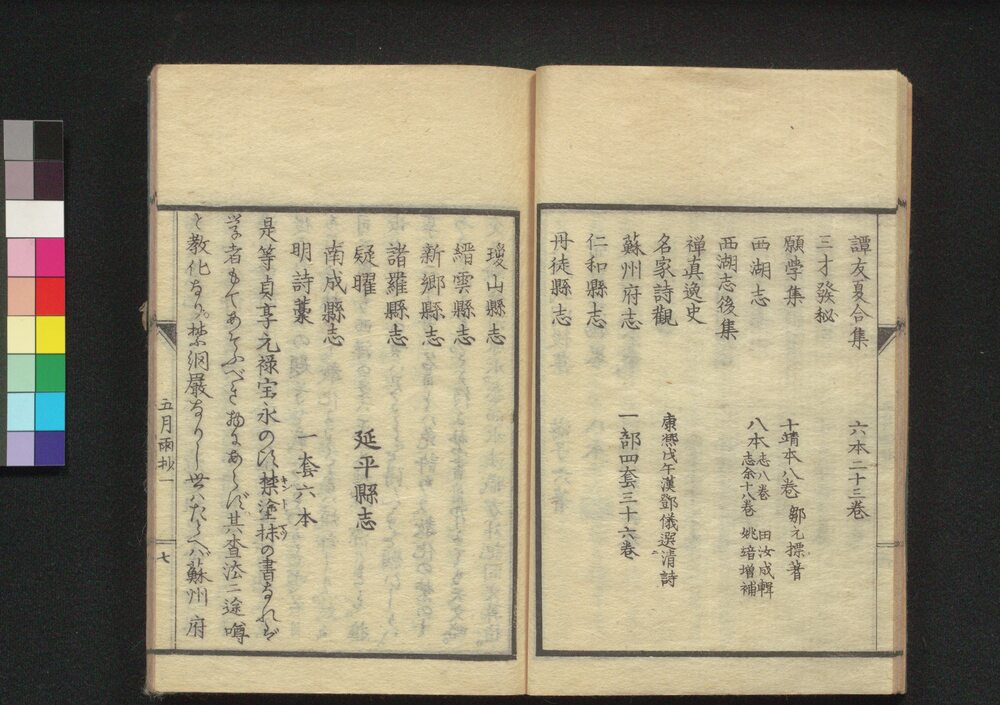 譚友夏合集 六本二十三卷
三才發秘
願学集 十靖本八卷 鄒元標著
西湖志 八本 志八卷 田汝成輯
志余十八卷 姚增補
西湖志後集
禅真逸史
名家詩觀 康熙戊午漢鄧儀選清詩
蘇州府志 一部四套三十六卷
仁和縣志
丹徒縣志
瓊山縣志
縉雲縣志
新郷縣志
諸羅縣志
疑曜 延平縣志
南成縣志
明詩藁 一套六本
是等貞享元禄宝永の頃禁塗抹の書なれど
学者もてあそふべき物にあらず其査法二途噂
と教化なり禁網嚴なりし世八たらバ蘇州府
五月雨抄一
七